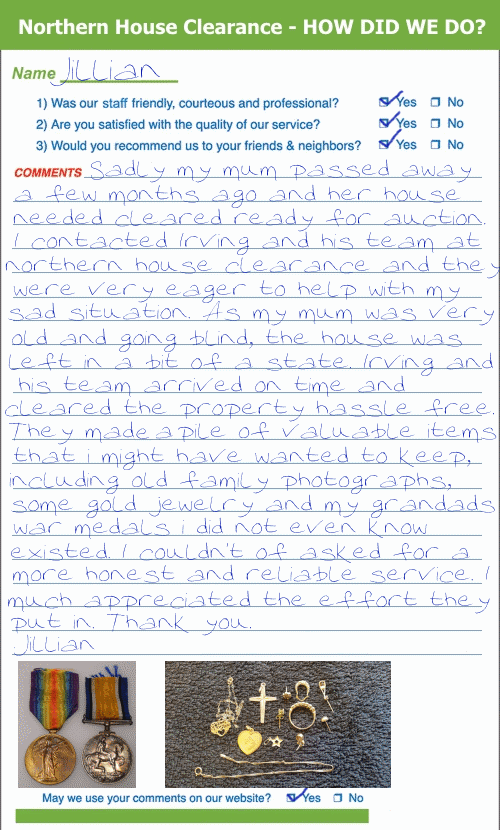 Northern House Clearance - HOW DID WE DO?
Name Jillian
1) Was our staff friendly, courteous and professional? Yes No
2) Are you satisfied with the quality of our service? Yes No
3) Would you recommend us to your friends & neighbors? Yes No
COMMENTS Sadly my mum passed away
a few months ago and her house
needed cleared ready for auction.
I contacted Irving and his team at
northern house clearance and they
were very eager to help with my
sad situation. As my mum was very
old and going blind, the house was
left in a bit of a state. Irving and
his team arrived on time and
cleared the property hassle free.
They made a pile of valuable items
that i might have wanted to keep,
including old family photographs,
some gold jewelry and my grandads
war medals i did not even know
existed. I couldn't of asked for a
more honest and reliable service. I
much appreciated the effort they
put in. Thank you.
Jillian
May we use your comments on our website? Yes No